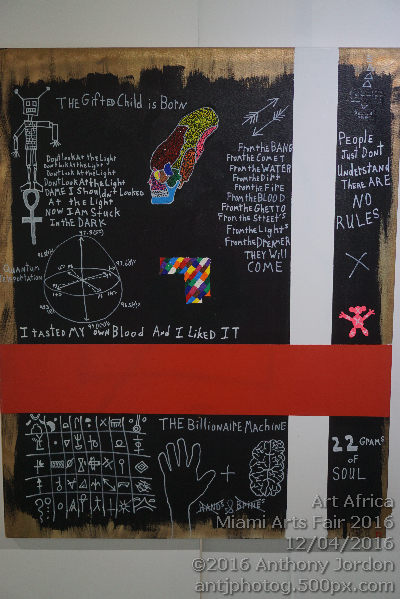 THE GIFTED CHILD is BORN
Dont Look At the Light
Dont Look At the Light
Dont Look At the Light
Dont Look At the Light
DAME I Shouldn't Looked
At the Light
NOW I AM Stuck
IN the DARK
From the BANG
From the COMET
From the WATER
From the DIRT
From the FIRE
From the BLOOD
From the GHETTO
From the Street's
From the Light's
From the DREAMER
THEY Will
COME
QUANTUM
Teleportation
I TASTED MY OWN Blood AND I LIKED IT
PEOPLE
Just Dont
Understand
THERE ARE
NO
RULES
THE BILLIONAIRE MACHINE
22 GRAMS
OF
SOUL
Art Africa
Miami Arts Fair 2016
12/04/2016
©2016 Anthony Jordon
antjphotog.500px.com